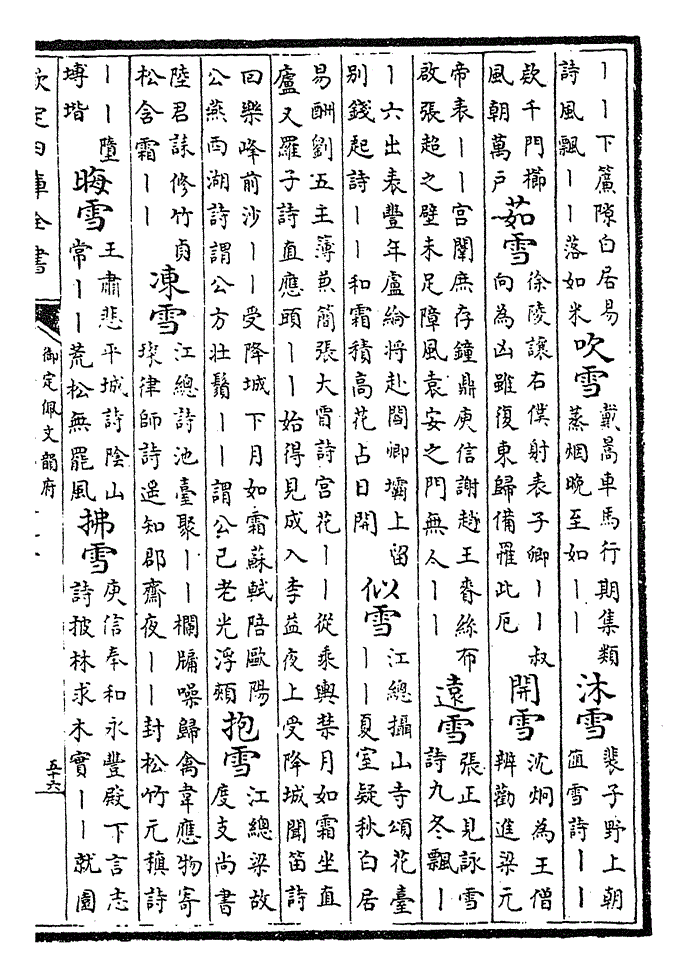 丨丨下簾隙白居易
詩風飄丨丨落如米
吹雪
戴暠車馬行期集類
蒸烟晚至如丨丨
沐雪
裴子野上朝
值雪詩丨丨
欵千門櫛
風朝萬戶
茹雪
徐陵讓右僕射表子卿丨丨叔
向為凶雖復東歸備罹此厄
開雪
沈炯為王僧
辨勸進梁元
帝表丨丨宮闈庶存鐘鼎庾信謝趙王賚絲布
啟張超之壁未足障風袁安之門無人丨丨
遠雪
張正見詠雪
詩九冬飄丨
丨六出表豐年盧綸將赴閿鄉灞上留
別錢起詩丨丨和霜積高花占日開
似雪
江總攝山寺頌花臺
丨丨夏室疑秋白居
易酬劉五主簿兼簡張大霄詩宮花丨丨從乘輿禁月如霜坐直
廬又羅子詩直應頭丨丨始得見成入李益夜上受降城聞笛詩
回樂峰前沙丨丨受降城下月如霜蘇軾陪歐陽
公燕西湖詩謂公方壯鬚丨丨謂公已老光浮頰
抱雪
江總梁故
度支尚書
陸君誄修竹貞
松含霜丨丨
凍雪
江總詩池臺聚丨丨欄牖噪歸禽韋應物寄
璨律師詩遙知郡齋夜丨丨封松竹元稹詩
丨丨墮
塼堦
晦雪
王肅悲平城詩陰山
常丨丨荒松無罷風
拂雪
庾信奉和永豐殿下言志
詩披林求木實丨丨就園
欽定四庫全書
御定佩文韻府
五十六